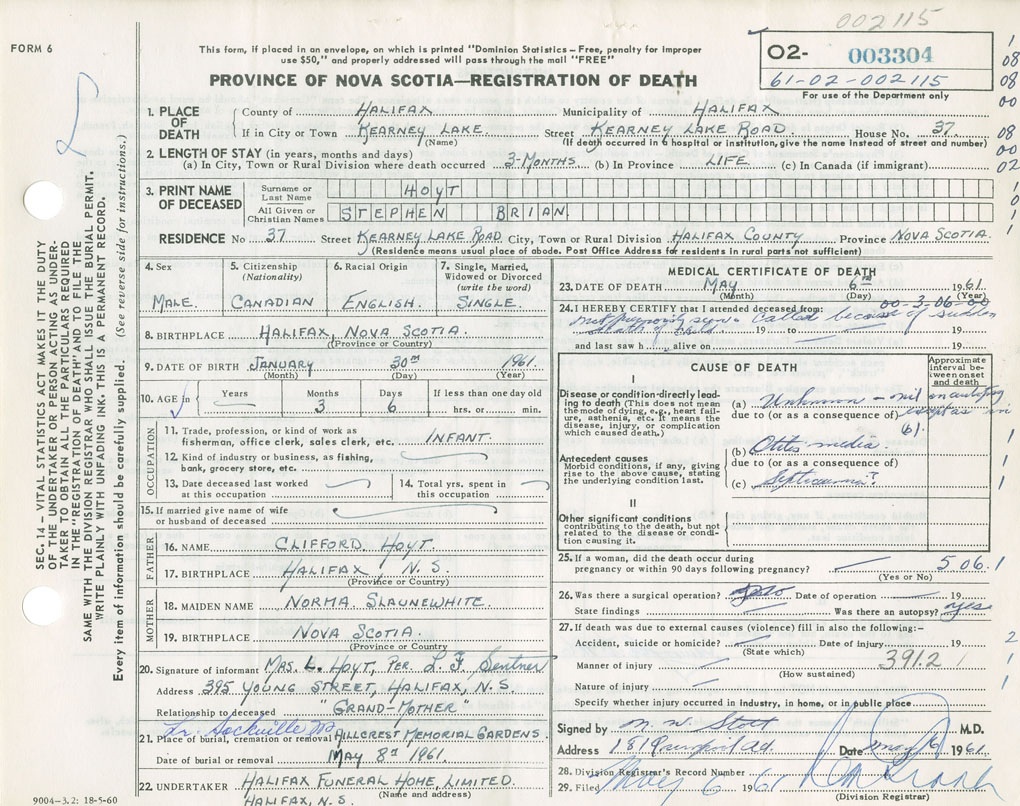 002115
FORM 6
This form, if placed in an envelope, on which is printed "Dominion Statistics – Free, penalty for improper
use $50," and properly addressed will pass through the mail "FREE"
PROVINCE OF NOVA SCOTIA—REGISTRATION OF DEATH
O2- 003304
61-02-002115
For use of the Department only
1. PLACE OF DEATH
County of HALIFAX Municipality of HALIFAX
If in City or Town KEARNEY LAKE Street KEARNEY LAKE ROAD House No. 37
(Name) (If death occurred in a hospital or institution, give the name instead of street and number)
2. LENGTH OF STAY (in years, months and days)
(a) In City, Town or Rural Division where death occurred 3-MONTHS (b) In Province LIFE (c) In Canada (if immigrant)
3. PRINT NAME OF DECEASED
Surname or Last Name HOYT
All Given or Christian Names STEPHEN BRIAN
RESIDENCE No 37 Street KEARNEY LAKE ROAD City, Town or Rural Division HALIFAX COUNTY Province NOVA SCOTIA.
(Residence means usual place of abode. Post Office Address for residents in rural parts not sufficient)
4. Sex
MALE.
5. Citizenship (Nationality)
CANADIAN
6. Racial Origin
ENGLISH.
7. Single, Married, Widowed or Divorced (write the word)
SINGLE.
8. BIRTHPLACE HALIFAX, NOVA SCOTIA.
(Province or Country)
9. DATE OF BIRTH JANUARY 30TH 1961.
(Month) (Day) (Year)
10. AGE in Years Months 3 Days 6 If less than one day old
hrs. or min.
OCCUPATION
11. Trade, profession, or kind of work as
fisherman, office clerk, sales clerk, etc. INFANT.
12. Kind of industry or business, as fishing,
bank, grocery store, etc.
13. Date deceased last worked
at this occupation
14. Total yrs. spent in
this occupation
15. If married give name of wife
or husband of deceased
FATHER
16. NAME CLIFFORD HOYT.
17. BIRTHPLACE HALIFAX, N.S.
(Province or Country)
MOTHER
18. MAIDEN NAME NORMA SLAUNEWHITE.
19. BIRTHPLACE NOVA SCOTIA.
(Province or Country
20. Signature of informant MRS. L. HOYT, PER. L F Sentner
Address 395 YOUNG STREET, HALIFAX, N.S.
Relationship to deceased "GRAND-MOTHER"
Sackville
21. Place of burial, cremation or removal HILLCREST MEMORIAL GARDENS.
Date of burial or removal MAY 8TH 1961.
22. UNDERTAKER HALIFAX FUNERAL HOME, LIMITED.
(Name and address)
HALIFAX, N.S.
9004-3.2: 18-5-60
MEDICAL CERTIFICATE OF DEATH
23. DATE OF DEATH MAY 6TH 1961
(Month) (Day) (Year)
00-3-06-00
24. I HEREBY CERTIFY that I attended deceased from:
not previously seen - called because of sudden
death of child 19 to 19
and last saw h alive on 19
CAUSE OF DEATH
Approximate interval between onset and death
I
Disease or condition directly leading to death (This does not mean the mode of dying, e.g., heart failure, asthenia, etc. It means the disease, injury, or complication which caused death.)
(a) Unknown
due to (or as a consequence of)
(b) Otitis media
due to (or as a consequence of)
(c) Septicaemia?
Antecedent causes
Morbid conditions, if any, giving rise to the above cause, stating the underlying condition last.
II
Other significant conditions
contributing to the death, but not related to the disease or condition causing it.
25. If a woman, did the death occur during
pregnancy or within 90 days following pregnancy? 506.1
(Yes or No)
26. Was there a surgical operation? Date of operation 19
State findings Was there an autopsy? yes
27. If death was due to external causes (violence) fill in also the following:-
Accident, suicide or homicide? Date of injury 19
(State which)
Manner of injury 391.2
(How sustained)
Nature of injury
Specify whether injury occurred in industry, in home, or in public place
Signed by M. W. Stott M.D.
Address Date May 6 1961.
28. Division Registrar's Record Number
29. Filed May 6 1961
(Division Registrar)
SEC. 14 – VITAL STATISTICS ACT MAKES IT THE DUTY
OF THE UNDERTAKER OR PERSON ACTING AS UNDER-
TAKER TO OBTAIN ALL THE PARTICULARS REQUIRED
IN THE "REGISTRATION OF DEATH" AND TO FILE THE
SAME WITH THE DIVISION REGISTRAR WHO SHALL ISSUE THE BURIAL PERMIT.
WRITE PLAINLY WITH UNFADING INK. THIS IS A PERMANENT RECORD.
Every item of information should be carefully supplied. (See reverse side for instructions.)
1
08
08
00
08
00
02
1
0
1
1
1
1
1
2
1
1